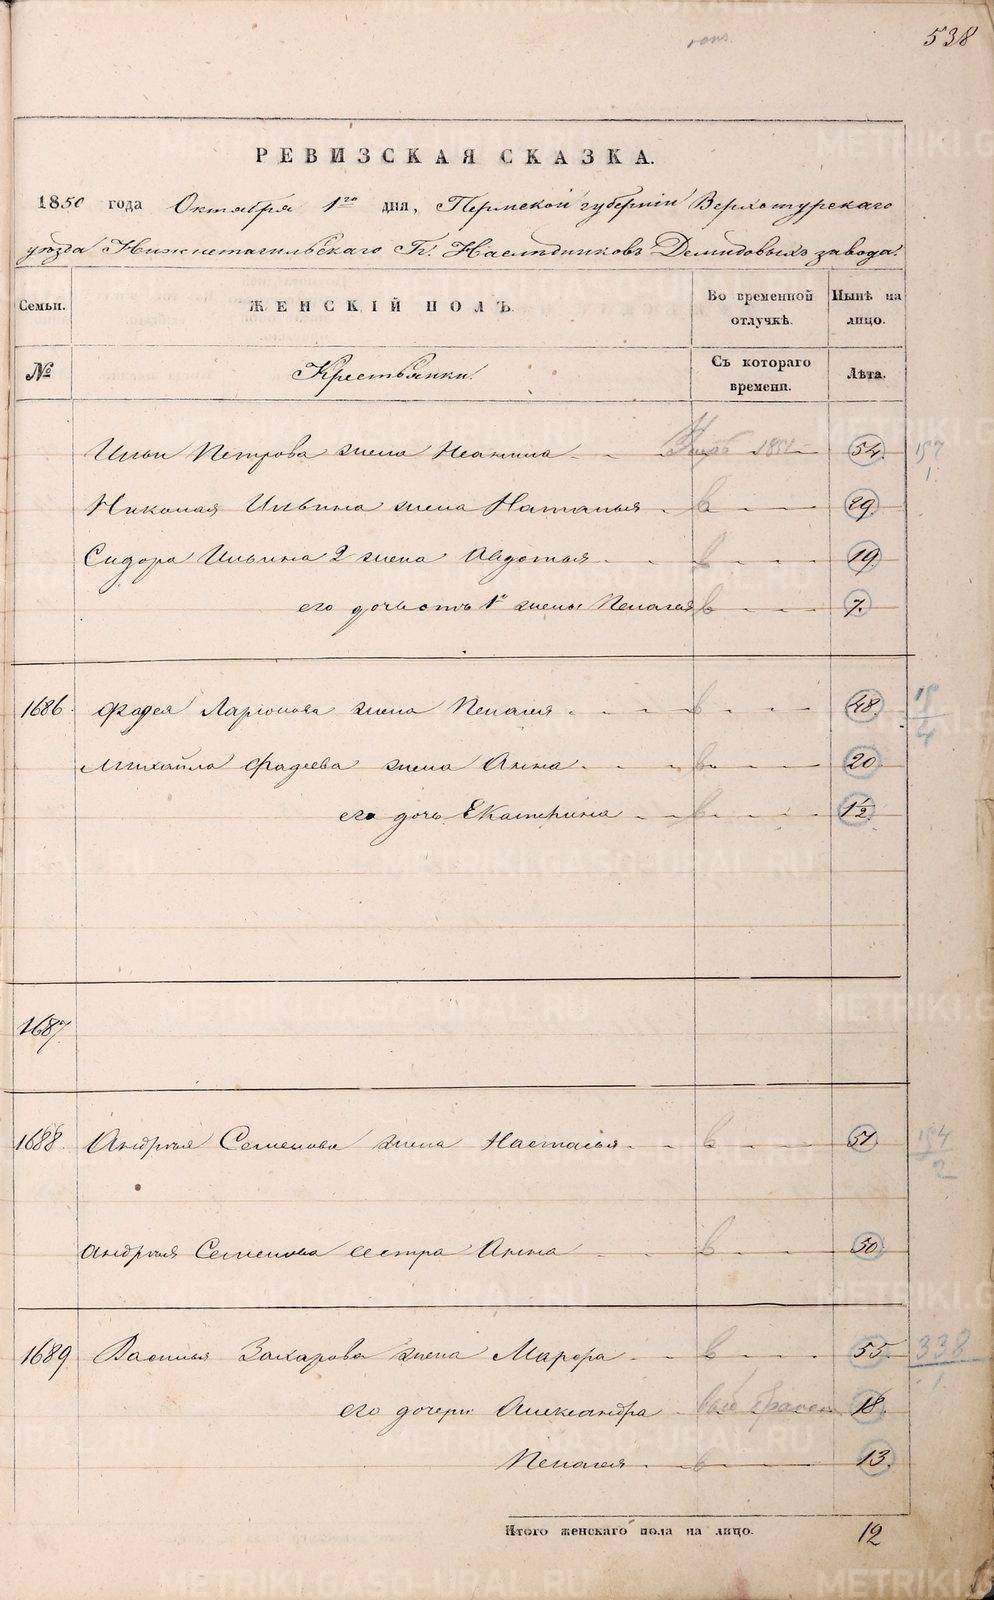 538
РЕВИЗСКАЯ СКАЗКА.
1850 года Октября 1го дня, Пермской губерніи Верхотурскаго
уѣзда Нижнетагильскаго Гг. Наслѣдниковъ Демидовыхъ завода.
Семьи. ЖЕНСКІЙ ПОЛЪ. Во временной отлучкѣ. Нынѣ на лицо.
№ Крестьянки. Съ котораго времени. Лѣта.
Ильи Петрова жена 54.
Николая Ильина жена Наталья 29.
Сидора Ильина 2 жена Авдотья 19.
его дочь отъ 1й жены Пелагея 7.
1686. Фадея Ларіонова жена Пелагея 48.
Михайла Фадеева жена Анна 20.
его дочь Екатерина 1½.
1687.
1688. Андрея Семенова жена Настасья 51.
Андрея Семенова сестра Анна 50.
1689. Василья Захарова жена Марфа 55. 338
его дочери Александра 18.
Пелагея 13.
Итого женскаго пола на лицо. 12
METRIKI.GASO-URAL.RU